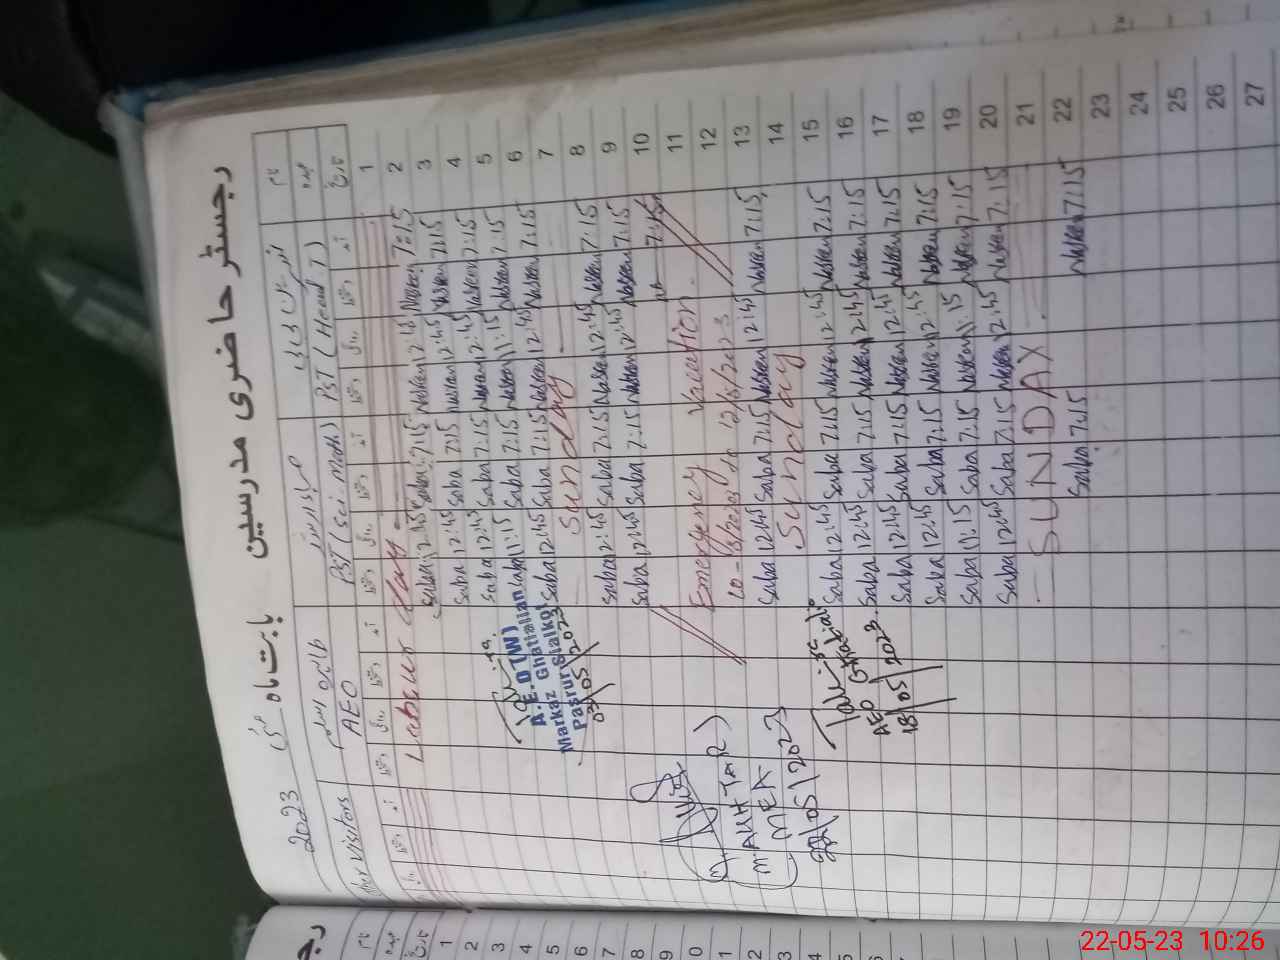 رجسٹر حاضری مدرسین بابت ماہ مئی 2023
نام
عہدہ
تاریخ
PST (Head T)
PST (Sci. Math)
AEO
Visitors
1 Labour Day
2 Nasreen 7:15 Nasreen 12:45 Saba 7:15 Saba 12:45
3 Nasreen 7:15 Nasreen 12:45 Saba 7:15 Saba 12:45
4 Nasreen 7:15 Nasreen 12:45 Saba 7:15 Saba 12:45
5 Nasreen 7:15 Nasreen 11:15 Saba 7:15 Saba 11:15
6 Nasreen 7:15 Nasreen 12:45 Saba 7:15 Saba 12:45
7 Sunday
8 Nasreen 7:15 Nasreen 12:45 Saba 7:15 Saba 12:45
9 Nasreen 7:15 Nasreen 12:45 Saba 7:15 Saba 12:45
10 7:15
11 Emergency Vacation
12 12/5/2023
13 Nasreen 7:15 Nasreen 12:45 Saba 7:15 Saba 12:45
14 Sunday
15 Nasreen 7:15 Nasreen 12:45 Saba 7:15 Saba 12:45
16 Nasreen 7:15 Nasreen 12:45 Saba 7:15 Saba 12:45
17 Nasreen 7:15 Nasreen 12:45 Saba 7:15 Saba 12:45
18 Nasreen 7:15 Nasreen 12:45 Saba 7:15 Saba 12:45
19 Nasreen 7:15 Nasreen 11:15 Saba 7:15 Saba 11:15
20 Nasreen 7:15 Nasreen 12:45 Saba 7:15 Saba 12:45
21 SUNDAY
22 Nasreen 7:15 Saba 7:15
23
24
25
26
27
A.E.O (W)
Markaz Ghatialian
Pasrur Sialkot
03/05/2023
(M. AKHTAR)
MEA
22/05/2023
AEO Ghatialian
18/05/2023
22-05-23 10:26